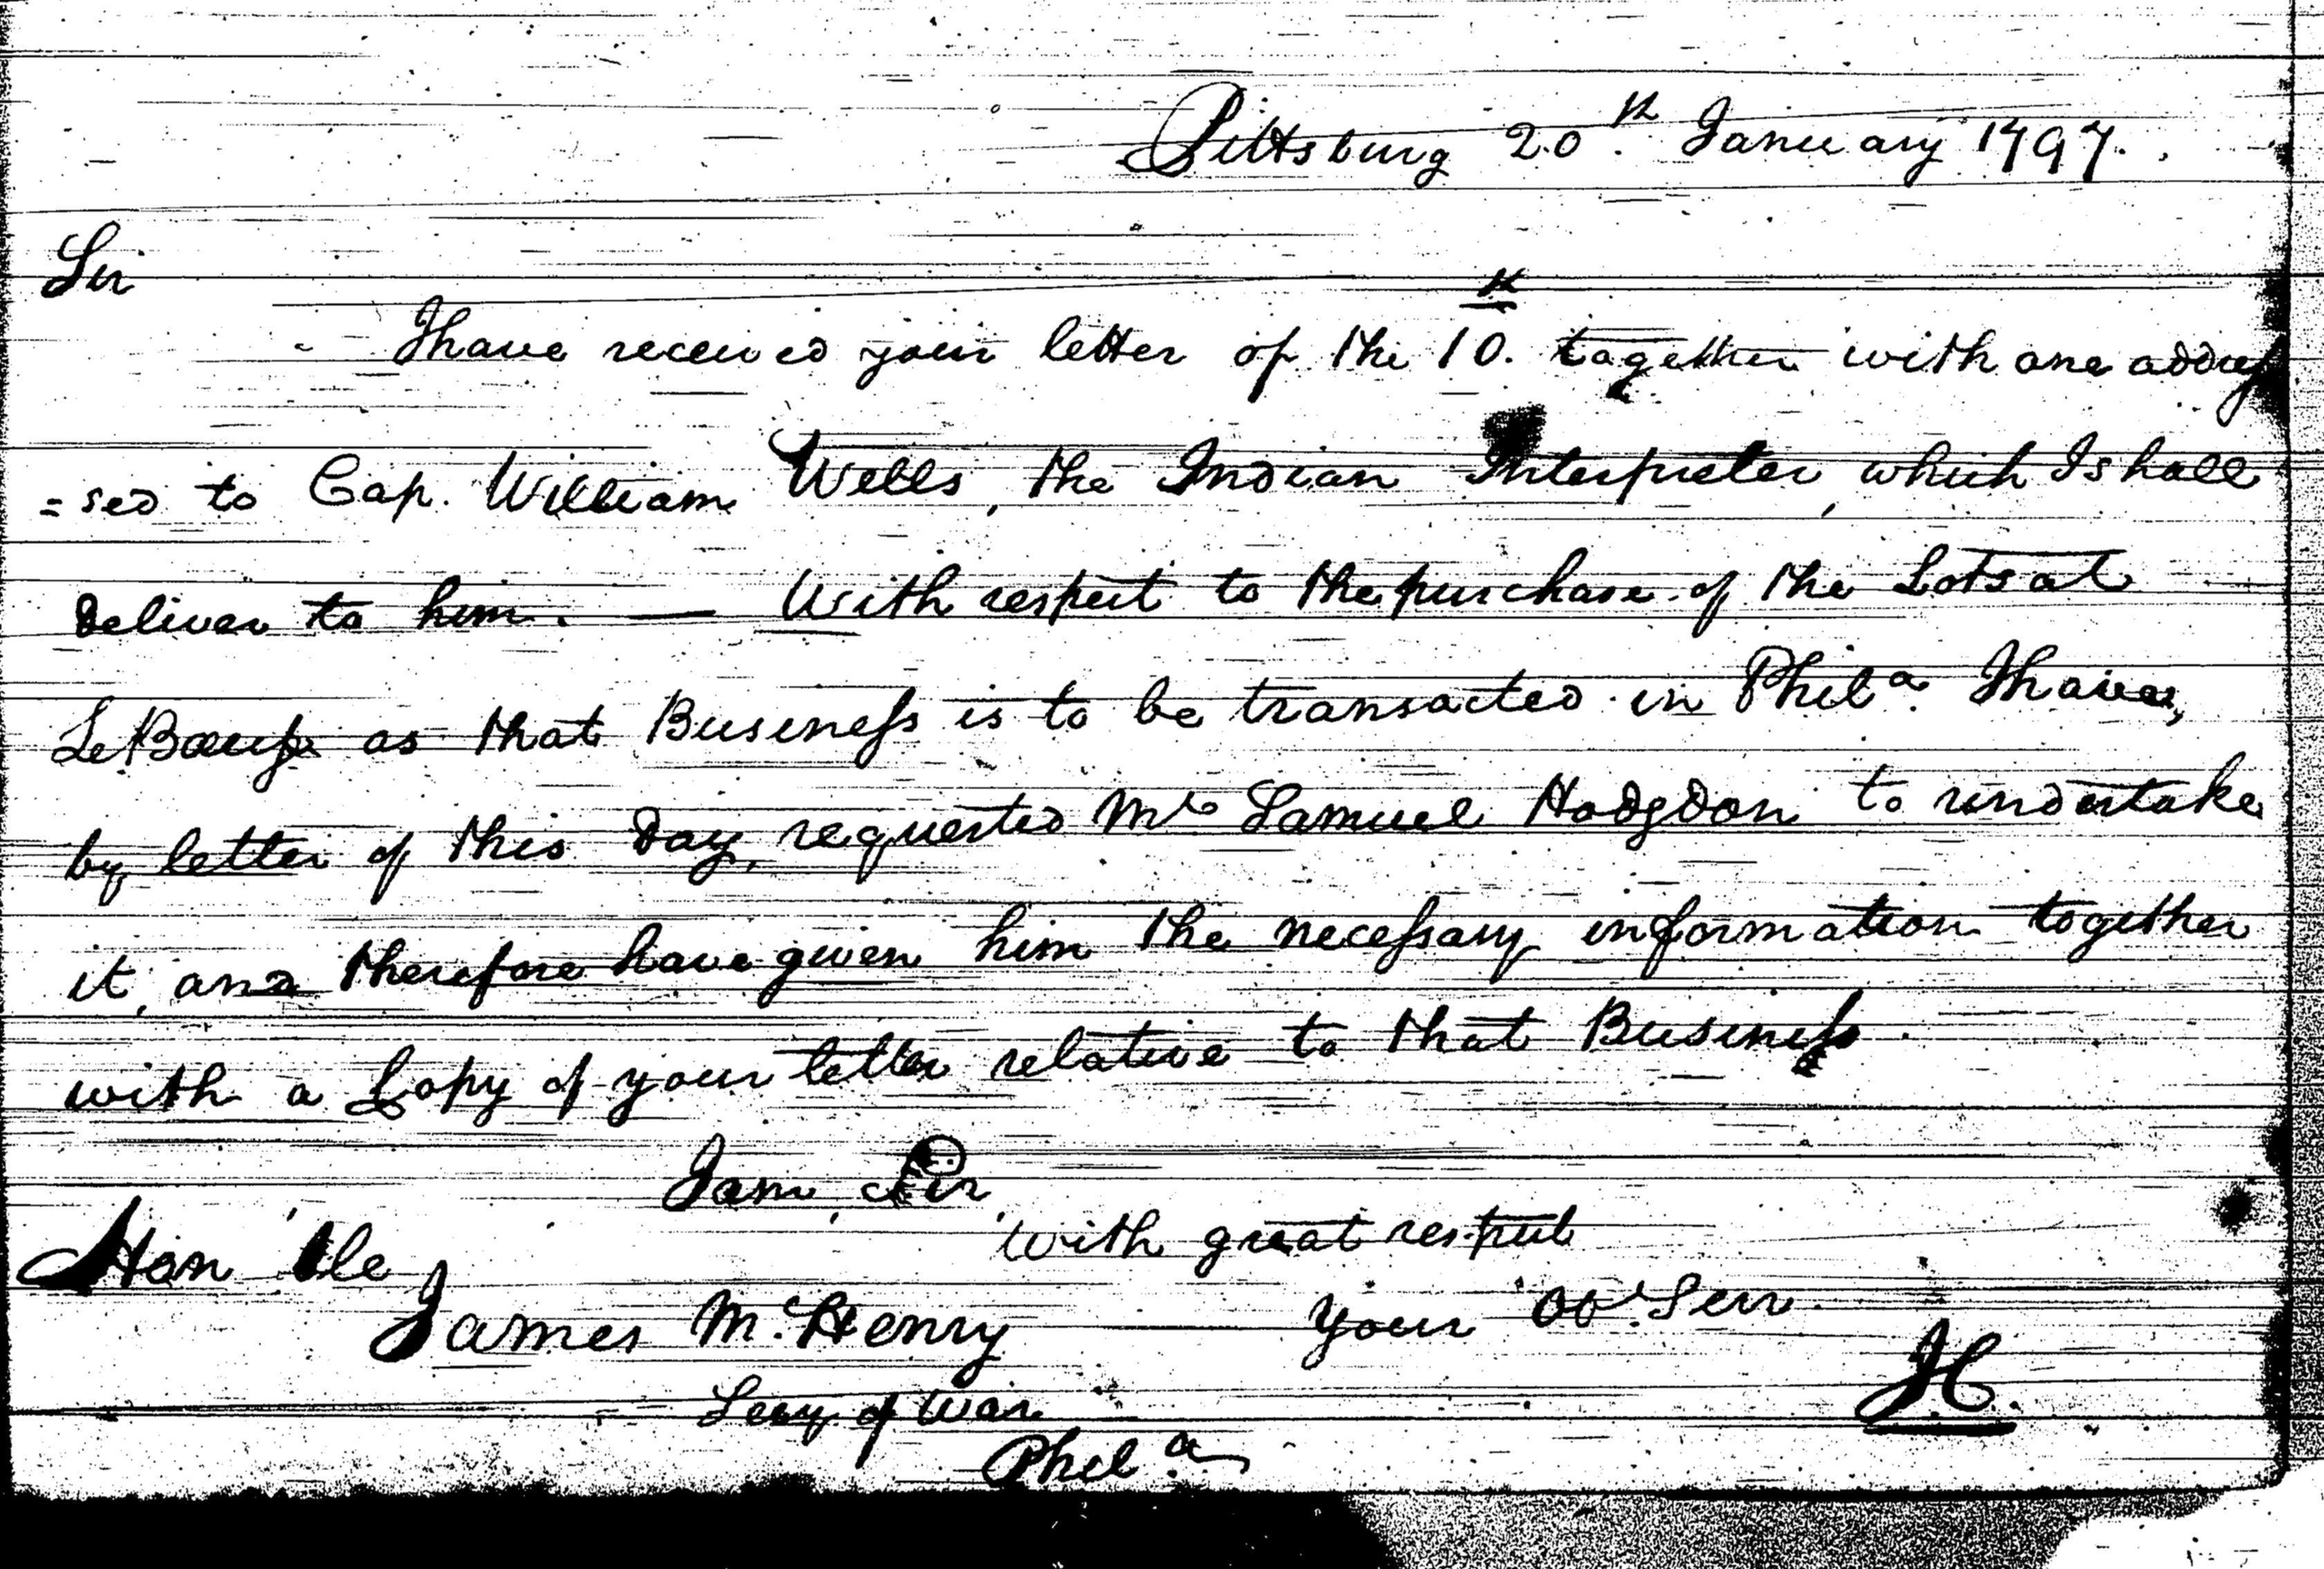 Pittsburg 20th. January 1797.
Sir
I have received your letter of the 10th. together with one addres
=sed to Cap. William Wells, the Indian Interpreter, which I shall
deliver to him. — With respect to the purchase of the Lots at
LeBoeuf as that Business is to be transacted in Phila. I have,
by letter of this Day, requested Mr Samuel Hodgdon to undertake
it, and therefore have given him the necessary information together
with a Copy of your letter relative to that Business.
I am, Sir,
with great respect
Honble
James McHenry
your Ob. Serv.
Secy of War
Phila.